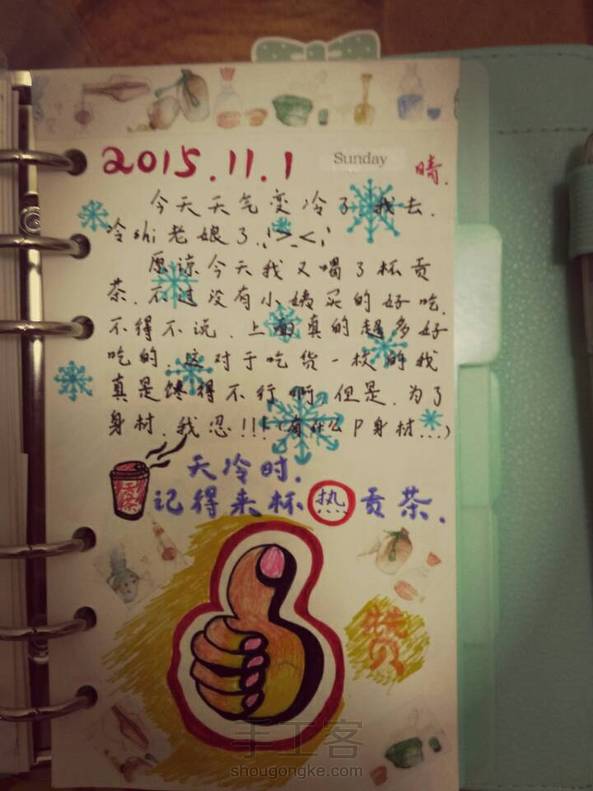 2015.11.1 Sunday 晴.
今天天气变冷了,我去.
冷shi老娘了.¡>_<¡
原谅今天我又喝了杯贡
茶.不过没有小姨买的好吃.
不得不说.上面真的超多好
吃的.这对于吃货一枚的我
真是馋得不行啊.但是.为了
身材.我忍!!!(有什么P身材...)
天冷时.
记得来杯热贡茶.
贡茶
赞
手工客
shougongke.com